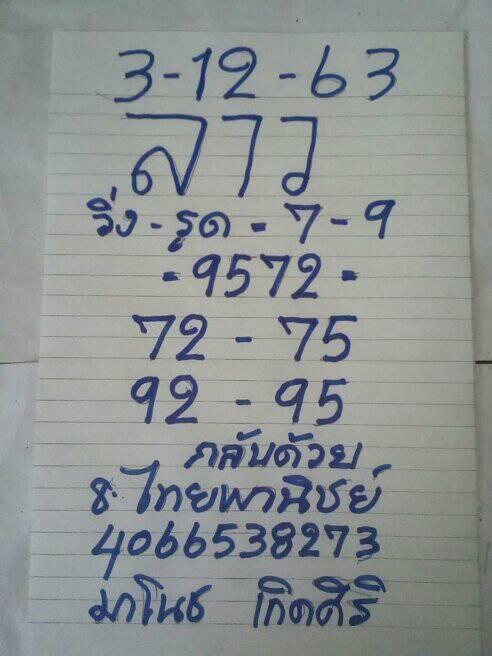 3-12-63
ลาว
วิ่ง - รูด = 7 - 9
- 9572 -
72 - 75
92 - 95
กลับด้วย
ธ. ไทยพานิชย์
4066538273
มาโนช เกิดศิริ